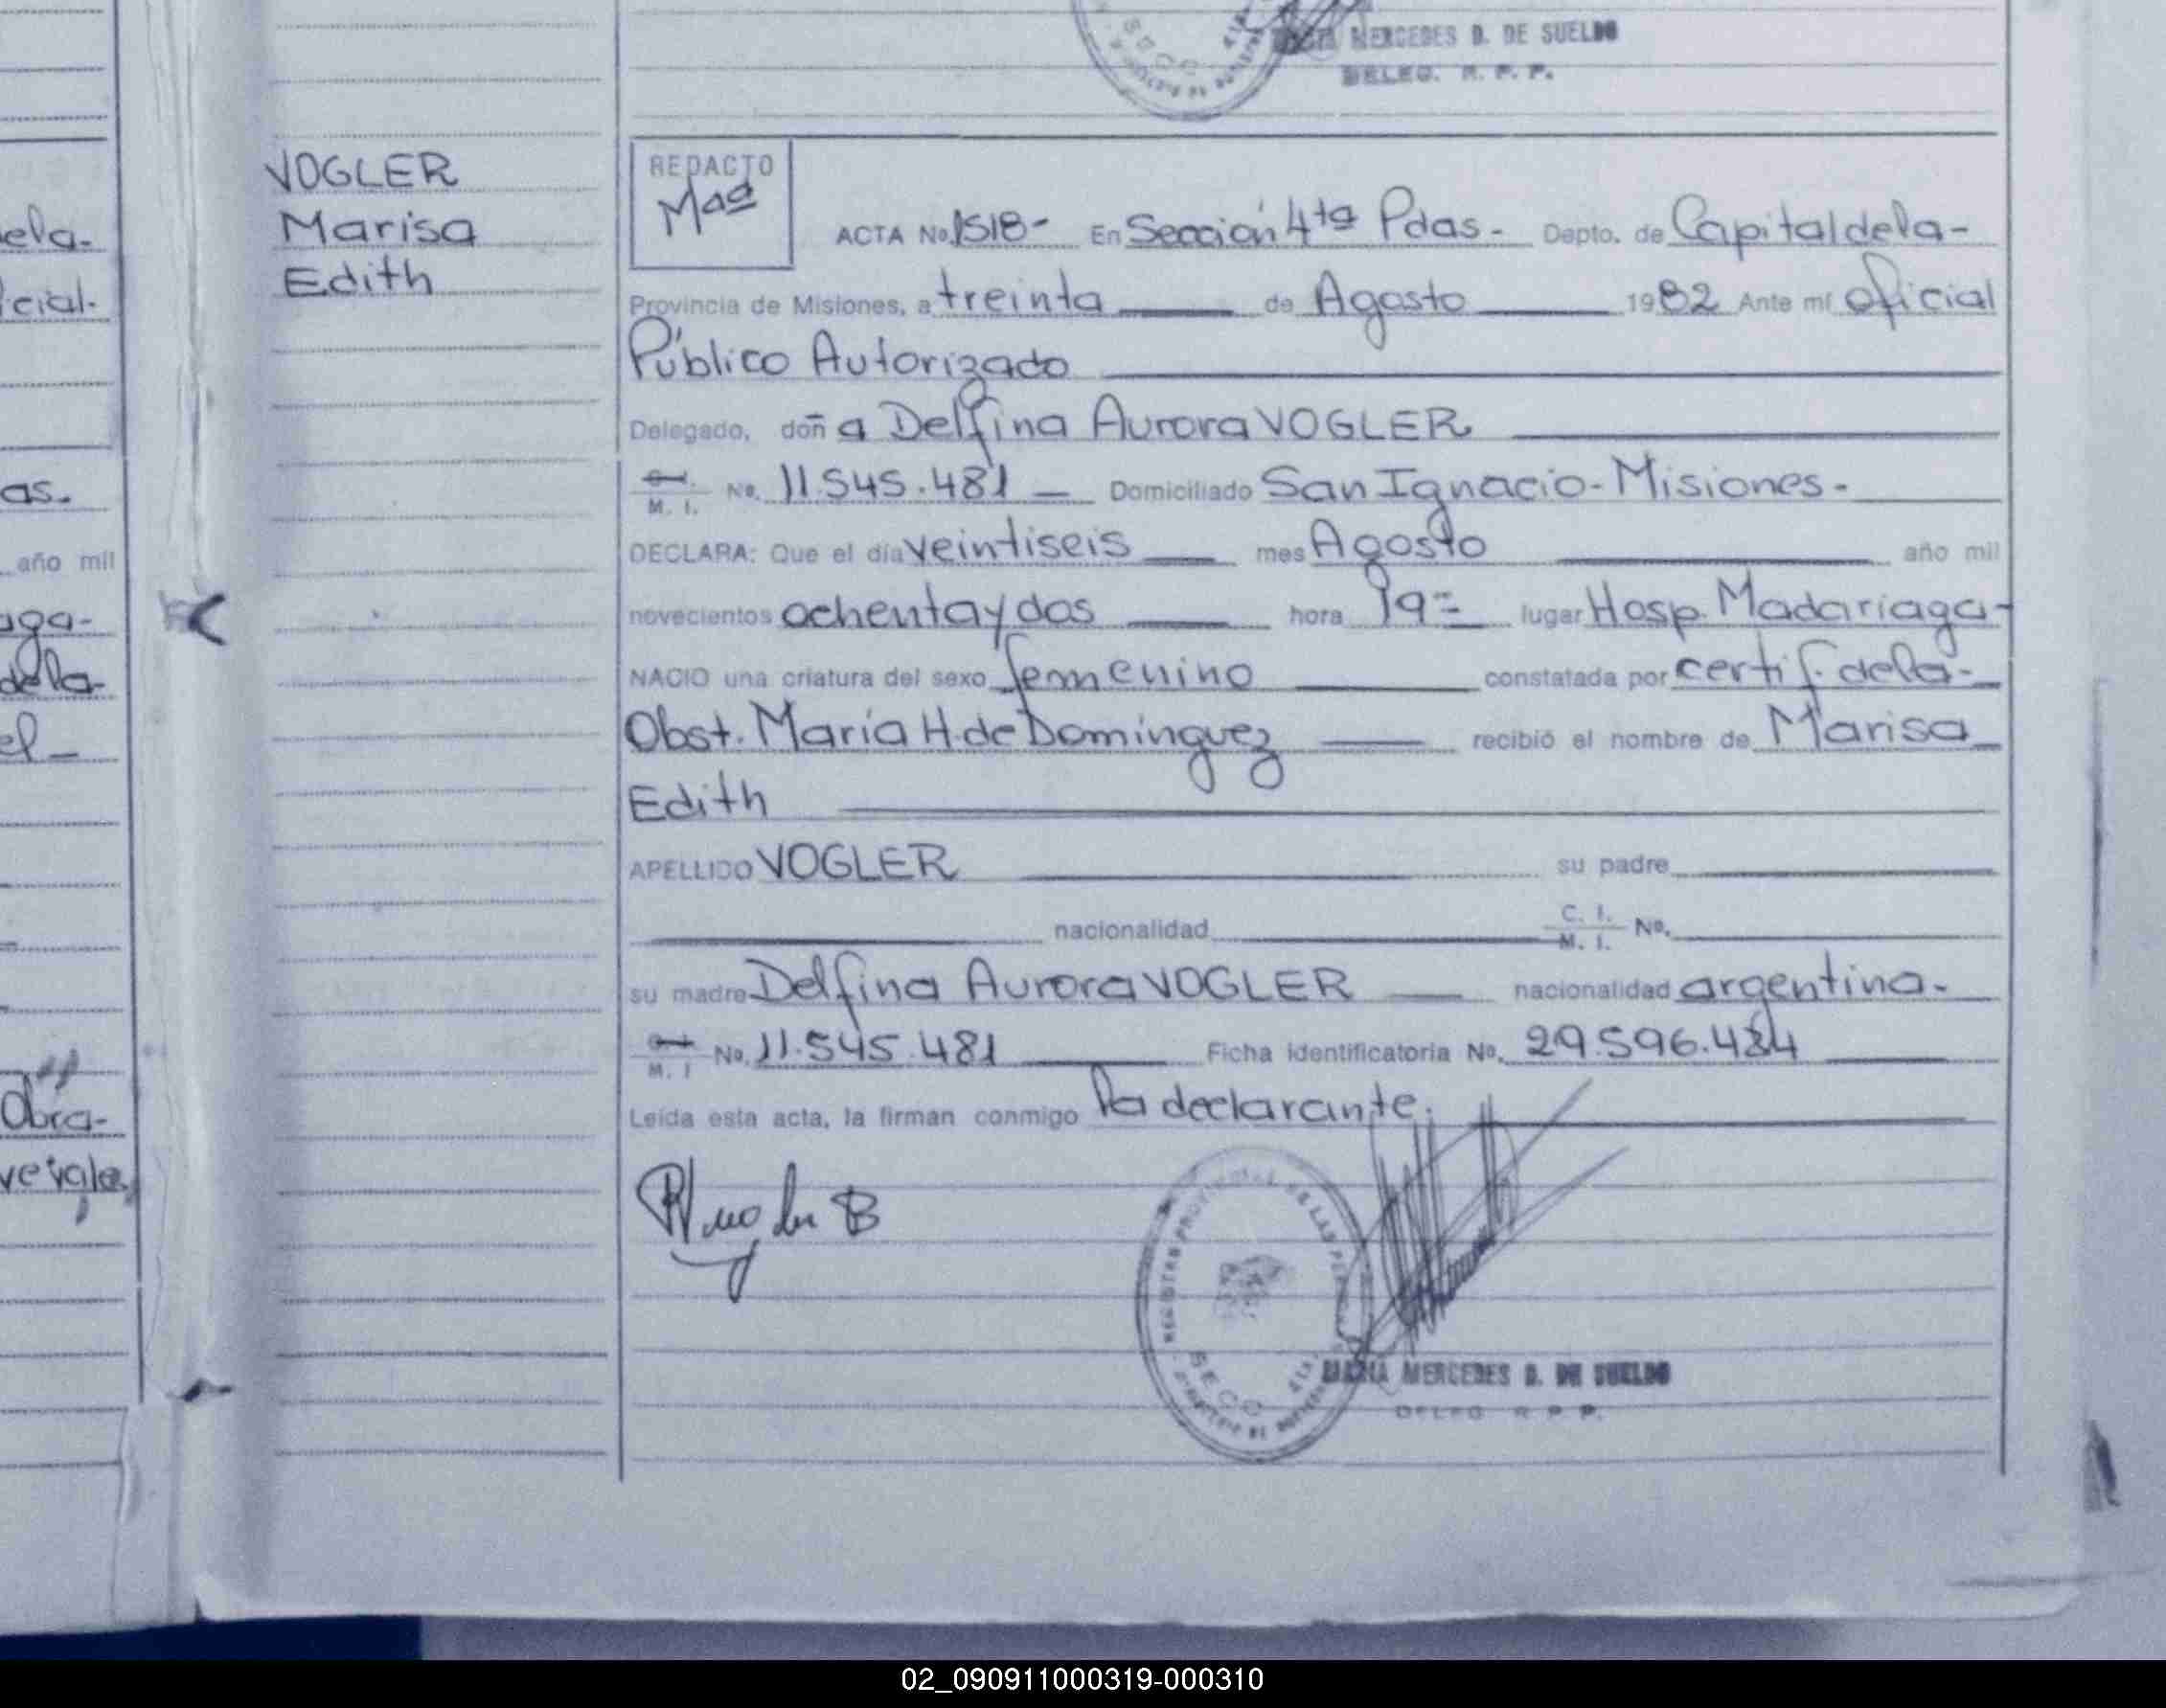 MERCEDES D. DE SUELDO
DELEG. R. P. P.
VOGLER
Marisa
Edith
REDACTO
Mas
ACTA No. 1518- En Sección 4ta Pdas.- Depto. de Capital de la-
Provincia de Misiones, a treinta de Agosto 1982 Ante mí oficial
Público Autorizado
Delegado, doña Delfina Aurora VOGLER
M. I. No. 11.545.481 — Domiciliado San Ignacio - Misiones.-
DECLARA: Que el día veintiseis mes Agosto año mil
novecientos ochenta y dos hora 19= lugar Hosp. Madariaga-
NACIO una criatura del sexo femenino constatada por certif. de la-
Obst. María H. de Domínguez recibió el nombre de Marisa
Edith
APELLIDO VOGLER su padre
nacionalidad C. I. M. I. No.
su madre Delfina Aurora VOGLER nacionalidad argentina.-
M. I No. 11.545.481 Ficha identificatoria No. 29.596.484
Leída esta acta, la firman conmigo la declarante.
MARIA MERCEDES D. DE SUELDO
DELEG R P P.
ela-
icial.
as.
año mil
aga-
dela-
el-
Obra-
vevale,
02_090911000319-000310